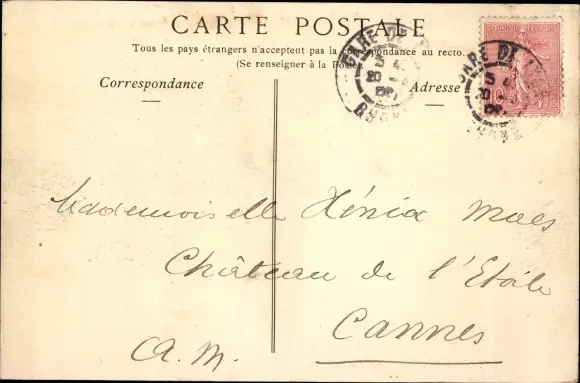 CARTE POSTALE
Tous les pays étrangers n'acceptent pas la correspondance au recto.
(Se renseigner à la Poste)
Correspondance
Adresse
GARE DE
5 4
20
GARE DE
5 4
20
Mademoiselle Xénia Maes
Château de l'Etoile
Cannes
A. M.